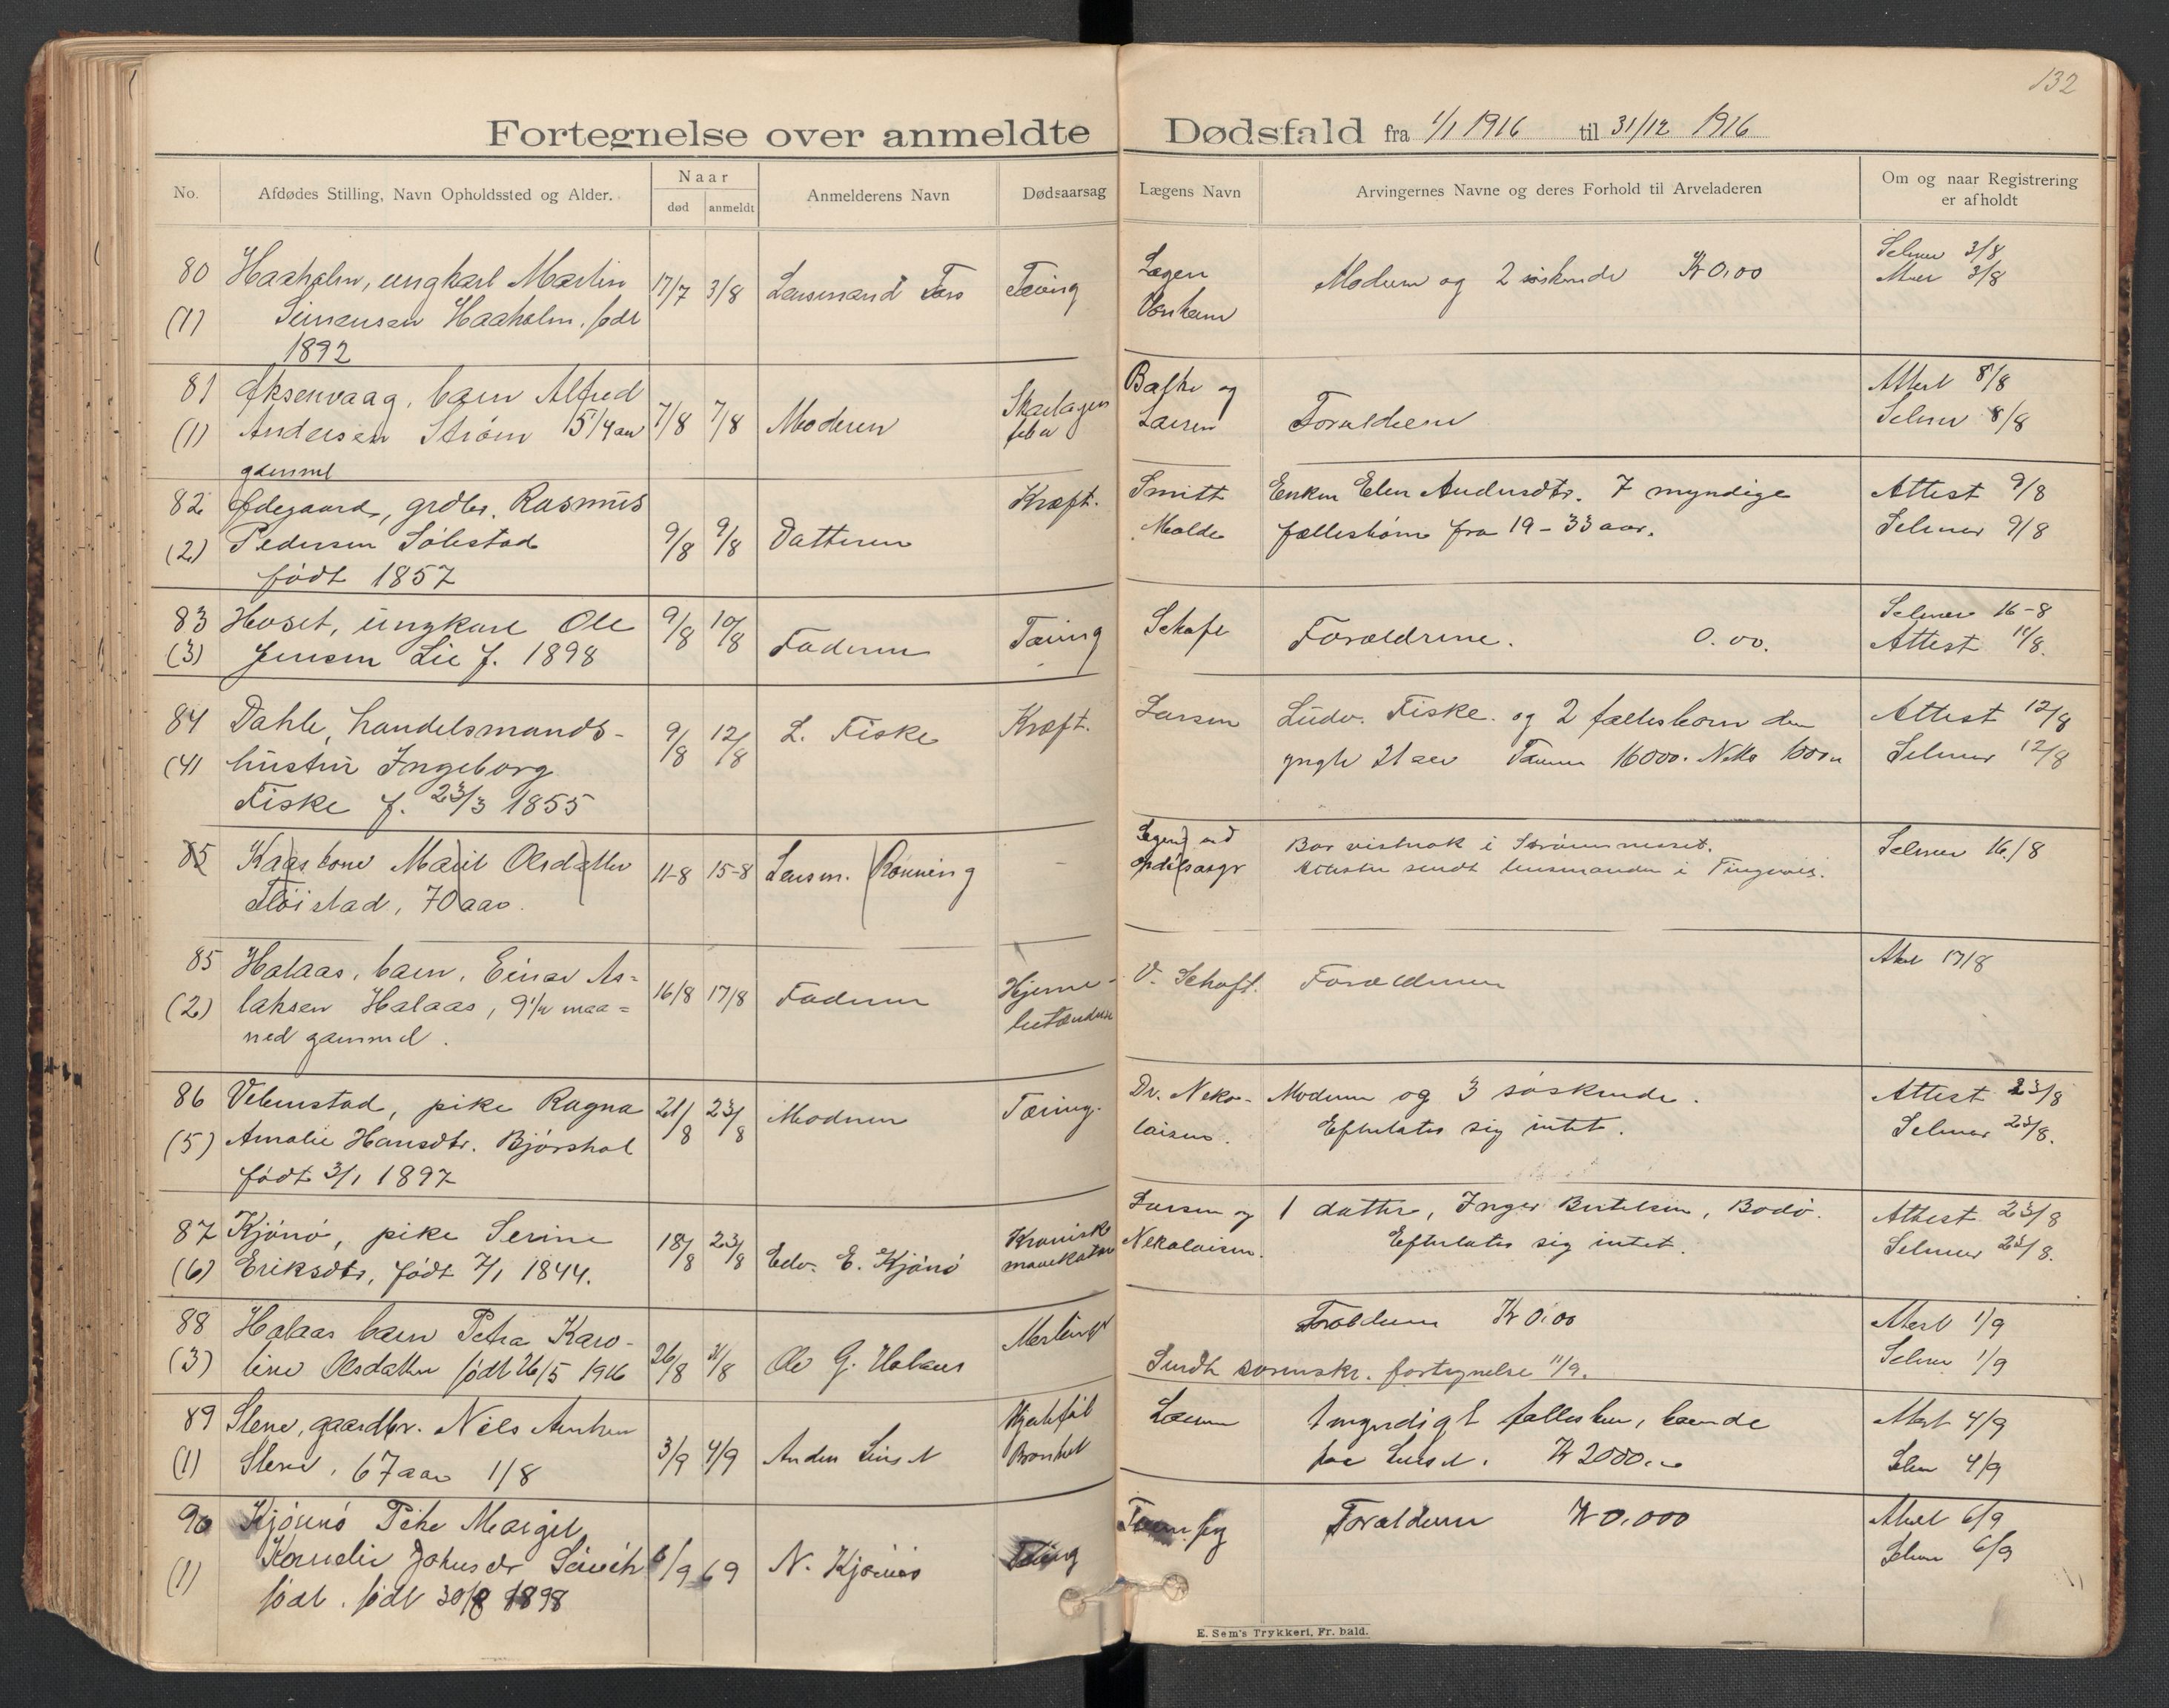 132
Fortegnelse over anmeldte Dødsfald fra 1/1 1916 til 31/12 1916
No.
Afdødes Stilling, Navn Opholdssted og Alder.
Naar
død
anmeldt
Anmelderens Navn
Dødsaarsag
Lægens Navn
Arvingernes Navne og deres Forhold til Arveladeren
Om og naar Registrering
er afholdt
80 Haaholm, ungkarl Martin 17/7 3/8 Lensmand Tæring Lægen Moderen og 2 søskende Kr 0,00 3/8
(1) Haaholm, født 3/8
1892
81 barn Alfred 7/8 7/8 Moderen Skarlagens Balke og Forældrene Attest 8/8
(1) Andersen Strøm 5 1/4 aar feber Larsen 8/8
gammel
82 Ødegaard, grdbr. Rasmus 9/8 9/8 Datteren Kræft. Smitt Enken Elen Andersdtr. 7 myndige Attest 9/8
(2) Pedersen Solestad Molde fællesbørn fra 19-33 aar. Selmer 9/8
født 1857
83 Hoset, ungkarl Ole 9/8 10/8 Faderen Tæring Schaft Forældrene. 0.00. Selmer 16-8
(3) Jensen Lie f. 1898 Attest 11/8.
84 Dahle, handelsmands- 9/8 12/8 L. Fiske Kræft. Larsen Ludv. Fiske og 2 fællesbørn den Attest 12/8
(4) hustru Ingeborg yngste 21 aar 16000. Netto Selmer 12/8
Fiske f. 23/3 1855
85 Kaasbone Marit Olsdatter 11-8 15-8 Lensm. Rønning - Bor vistnok i Strømsneset. Selmer 16/8
Fløistad, 70 aar. sendt lensmanden i Tingvoll.
85 Halaas, barn, Einar As= 16/8 17/8 Faderen Hjerne- V. Schaft. Forældrene 17/8
(2) laksen Halaas, 9 1/2 maa= betændelse
ned gammel.
86 Vebenstad, pike Ragna 21/8 23/8 Moderen Tæring. Dr. Neko- Moderen og 3 søskende. Attest 23/8
(5) Amalie Hansdtr. Bjørshol laisen. Efterlater sig intet. Selmer 23/8.
født 3/1 1897
87 Kjønø, pike Serine 18/8 23/8 Edv. E. Kjønø Kronisk Larsen og 1 datter, Inger Bertelsen, Bodø. Attest 23/8
(6) Eriksdtr, født 7/1 1844. mavekatar Nekolaisen. Efterlater sig intet. Selmer 23/8.
88 Halaas barn Petra Karo- 26/8 31/8 Ole G. Halaas Forældrene Kr 0,00 Attest 1/9
(3) line Olsdatter født 26/5 1916 Sendt sorenskr. fortegnelse 11/9. Selmer 1/9
89 Stene, gaardbr. Nils 3/9 4/9 Anders Hjertefeil Larsen 1 myndigt fællesbarn, Attest 4/9
(1) Stene, 67 aar 1/8 Bronkit Kr 2000. 4/9
90 Kjønnø Pike Margit 6/9 6 9 N. Kjønnø Tæring Forældrene Kr 0,000 Attest 6/9
(1) 6/9
født. født 30/8 1898
E. Sem's Trykkeri, Fr. hald.